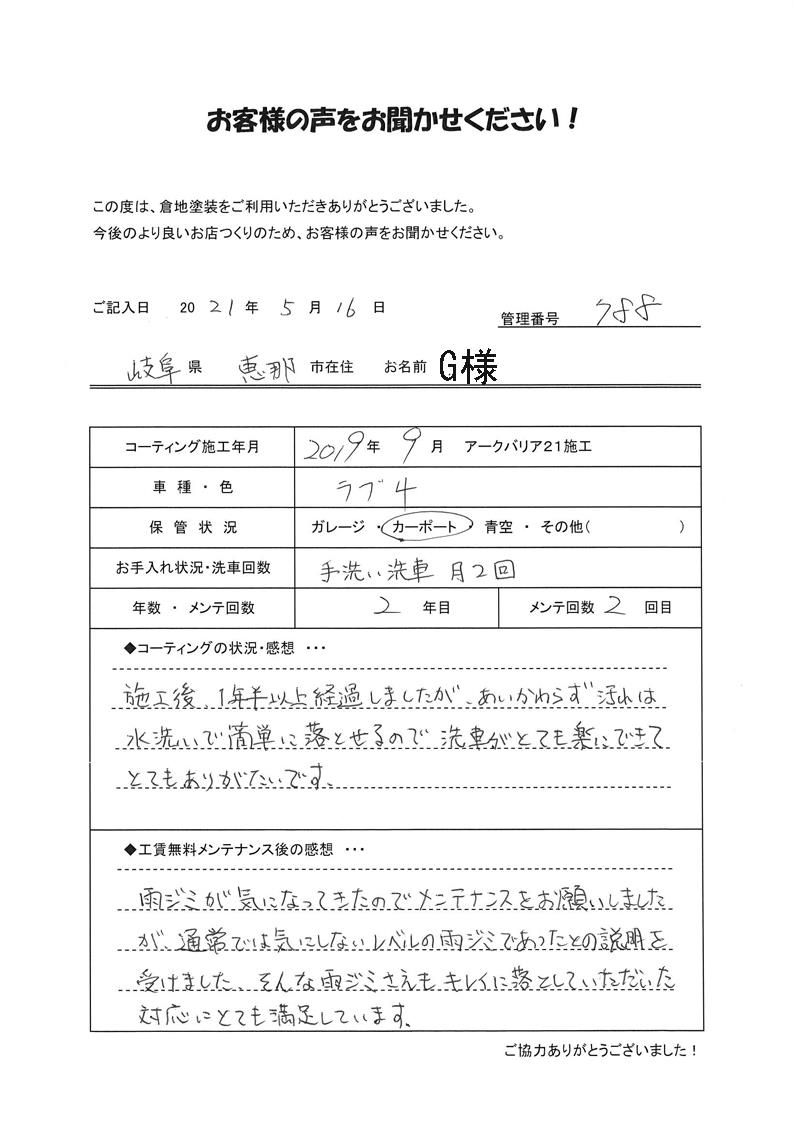 お客様の声をお聞かせください！
この度は、倉地塗装をご利用いただきありがとうございました。
今後のより良いお店つくりのため、お客様の声をお聞かせください。
ご記入日 2021年 5月 16日
管理番号 788
岐阜県 恵那市在住 お名前 G様
コーティング施工年月 2019年 9月 アークバリア21施工
車種・色 ラブ4
保管状況 ガレージ ・ カーポート ・ 青空 ・ その他( )
お手入れ状況・洗車回数 手洗い洗車 月2回
年数 ・ メンテ回数 2 年目 メンテ回数 2 回目
◆コーティングの状況・感想 ・・・
施工後、1年半以上経過しましたが、あいかわらず汚れは
水洗いで簡単に落とせるので洗車がとても楽にできて
とてもありがたいです。
◆工賃無料メンテナンス後の感想 ・・・
雨ジミが気になってきたのでメンテナンスをお願いしました
が、通常では気にしないレベルの雨ジミであったとの説明を
受けました、そんな雨ジミさえもキレイに落としていただいた
対応にとても満足しています。
ご協力ありがとうございました！